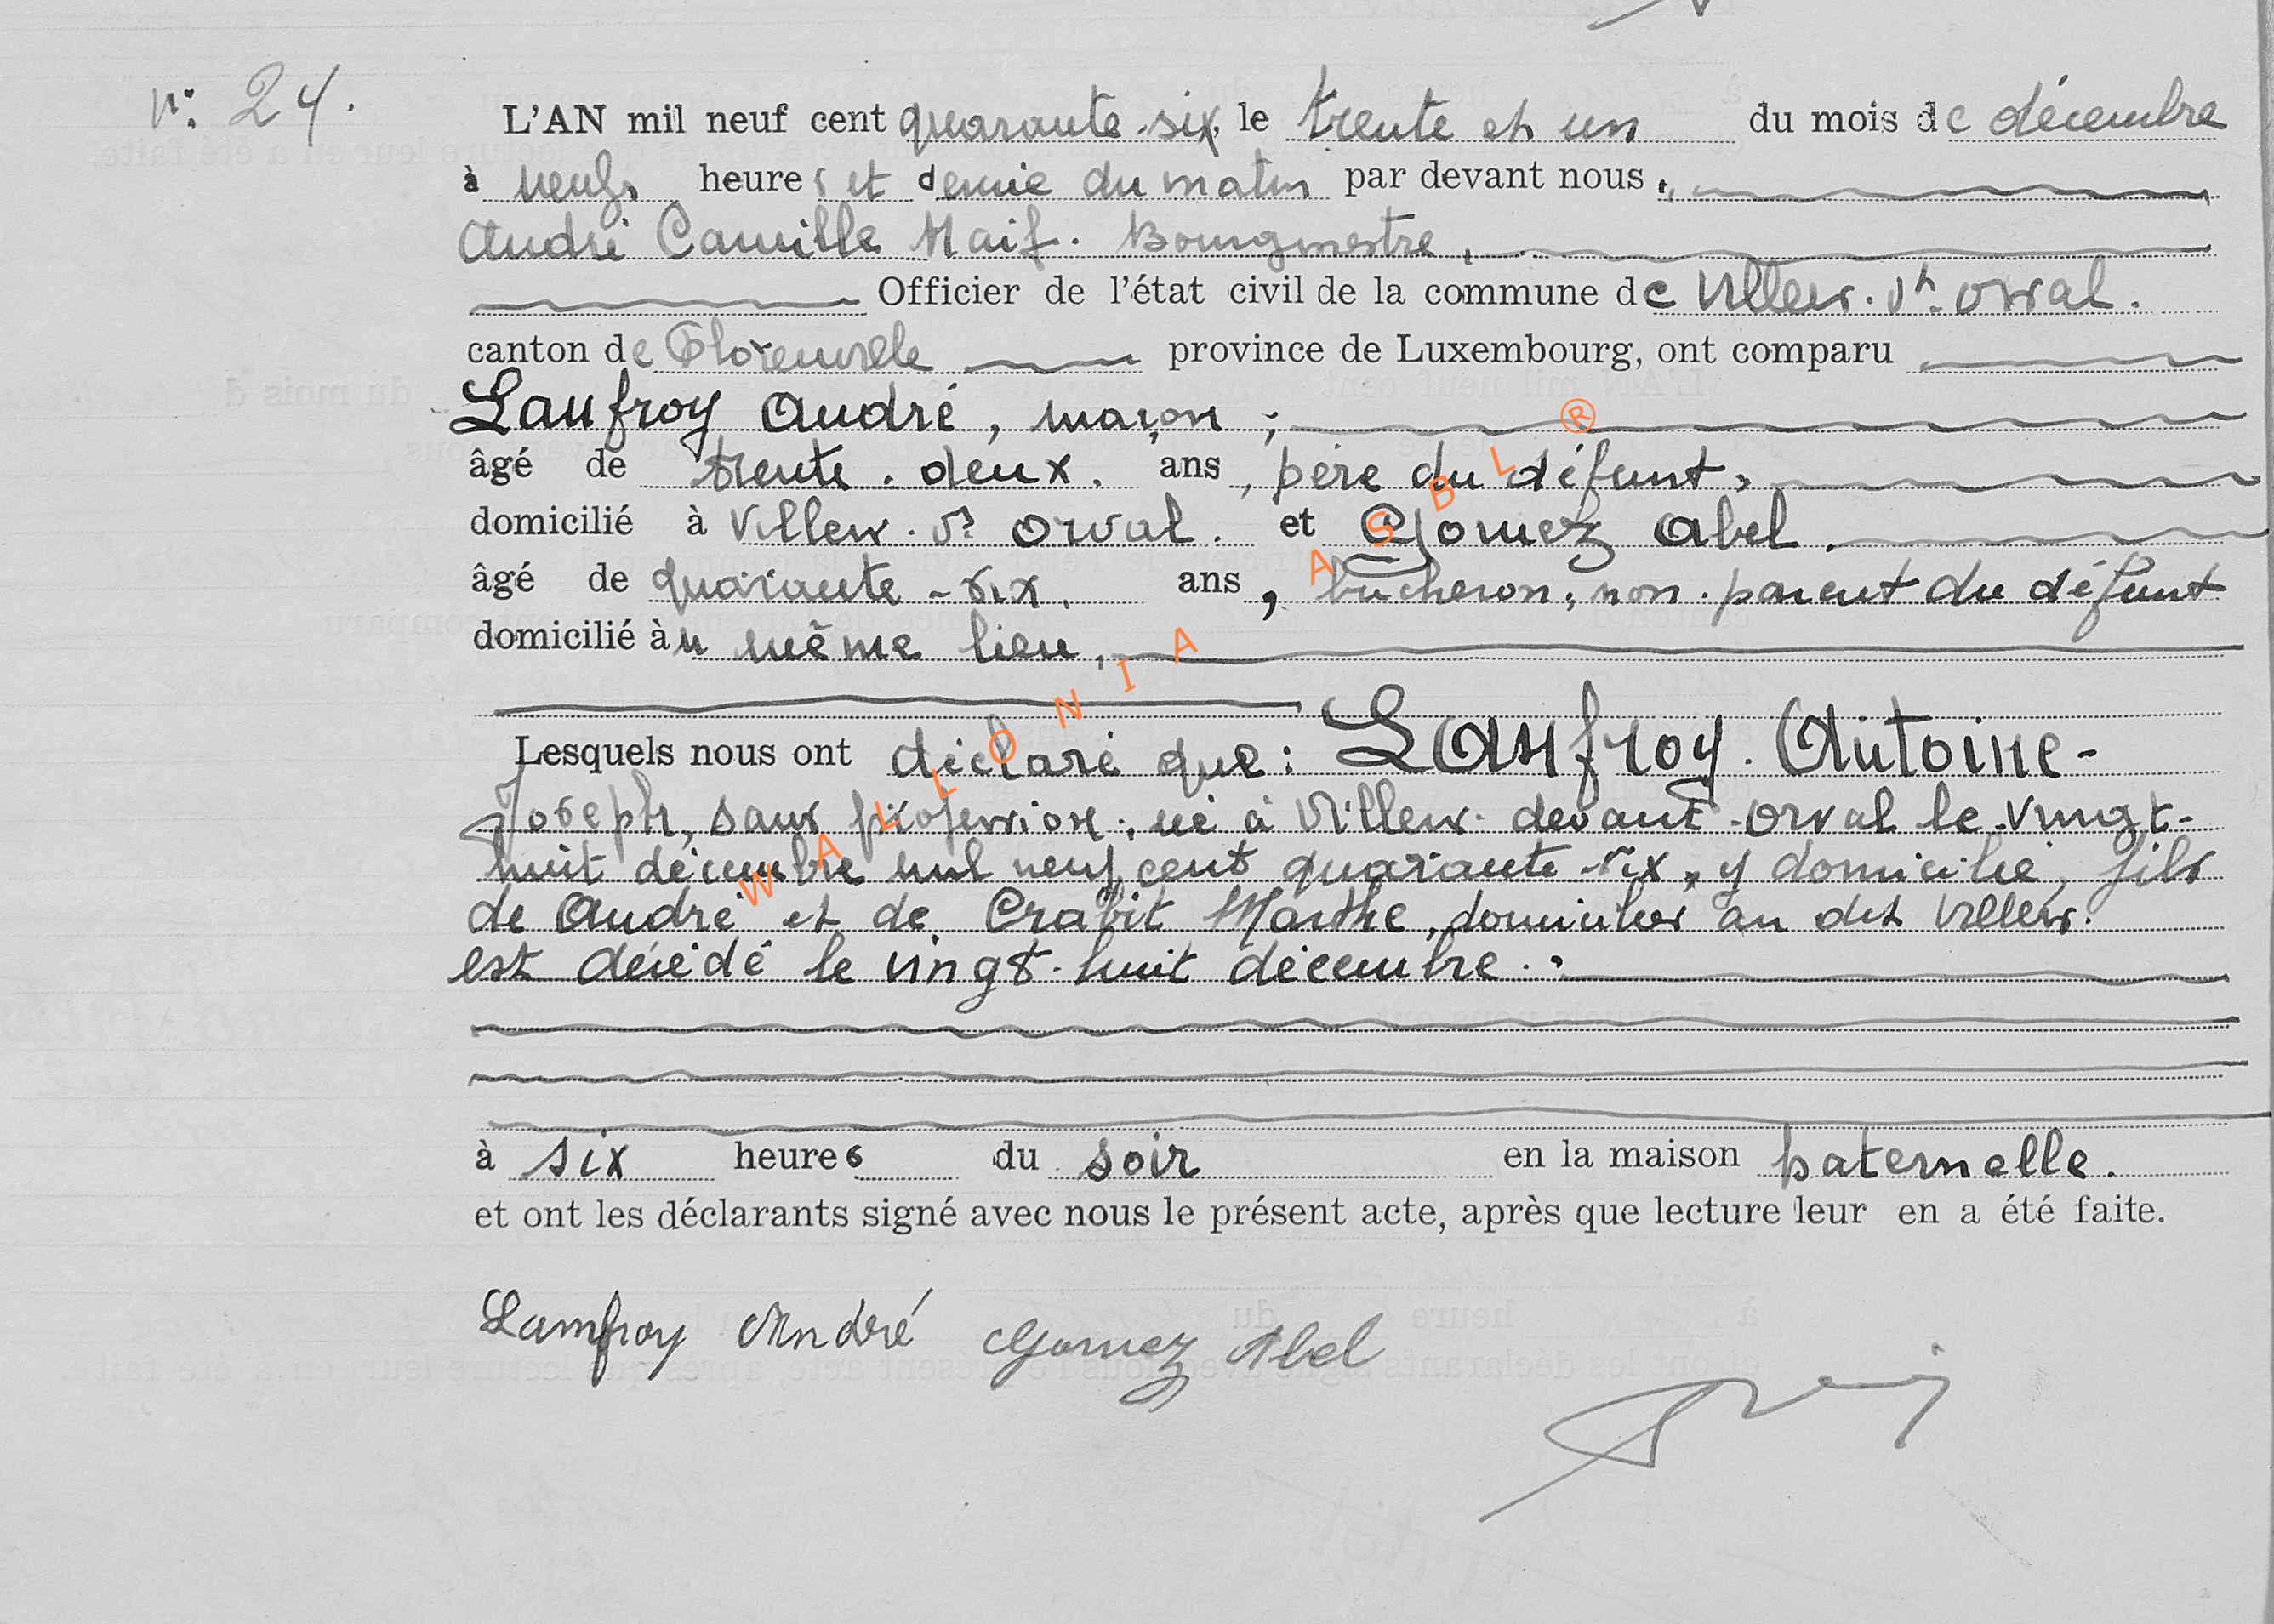 n: 24.
L'AN mil neuf cent quarante-six, le trente et un du mois de décembre
à neuf heures et demie du matin par devant nous,
André Camille Naif. Bourgmestre,
Officier de l'état civil de la commune de Villers-dt-Orval.
canton de Florenville province de Luxembourg, ont comparu
Lanfroy André, maçon,
âgé de trente-deux ans, père du défunt,
domicilié à Villers-dt Orval. et Gomez Abel.
âgé de quarante-six, ans, bûcheron, non parent du défunt
domicilié au même lieu,
Lesquels nous ont déclaré que: Lanfroy. Antoine-
Joseph, sans profession, né à Villers-devant-Orval le vingt-
huit décembre mil neuf cent quarante-six, y domicilié, fils
de André et de Crabit Marthe, domiciliés au dit Villers.
est décédé le vingt-huit décembre.
à six heures du soir en la maison paternelle.
et ont les déclarants signé avec nous le présent acte, après que lecture leur en a été faite.
Lamfroy André Gomez Abel
WALLONIA ASBL ®